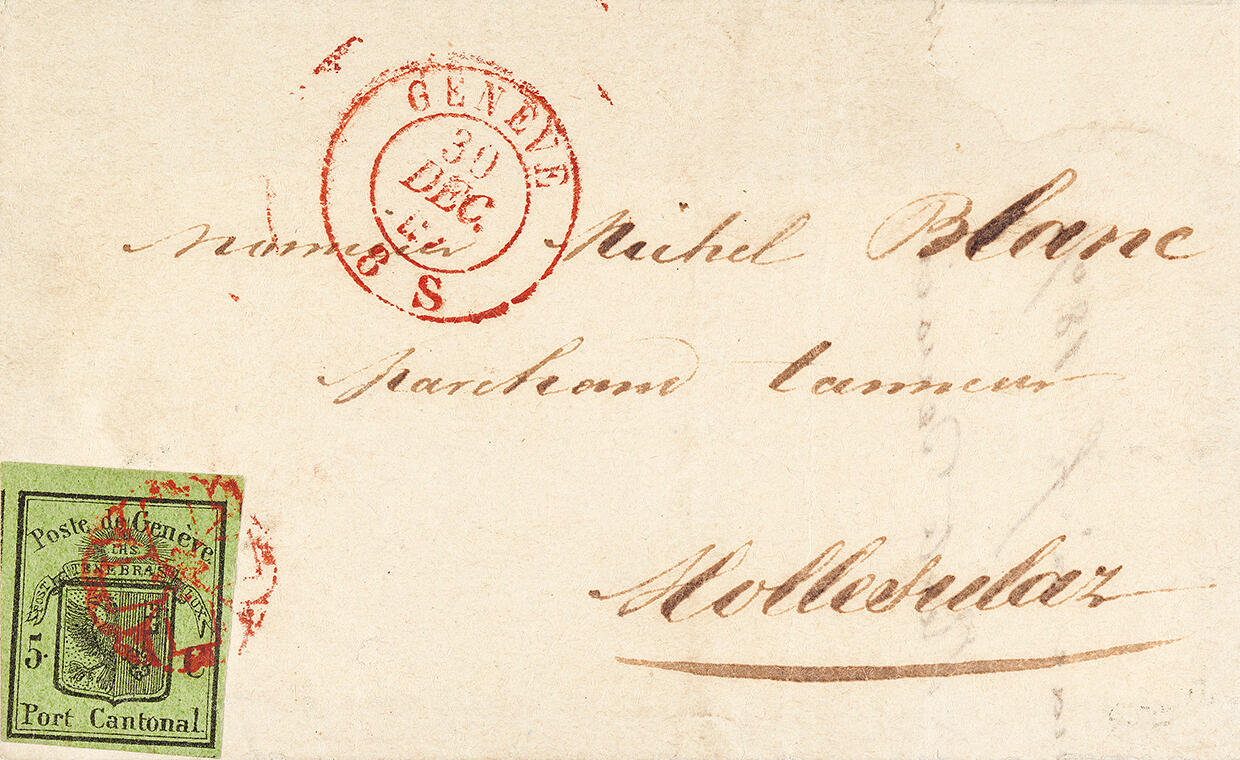 GENEVE
30
DEC.
8 S
Monsieur Michel Blanc
Marchand tanneur
Mollesulaz
Poste de Genève
IHS
POST TENEBRAS LUX
5. C
Port Cantonal